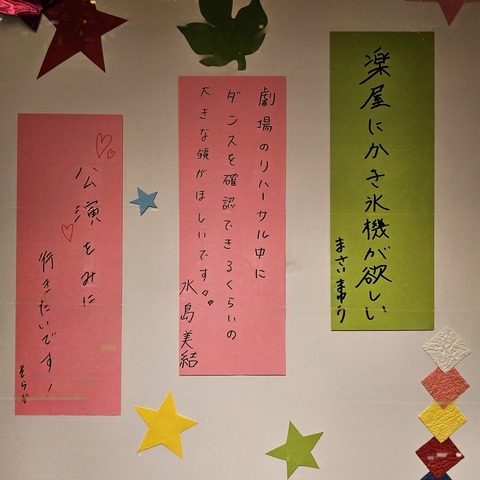 楽屋にかき氷機が欲しい
まさい まゆう
劇場のリハーサル中に
ダンスを確認できるくらいの
大きな鏡がほしいです
水島美結
公演をみに
行きたいです!
そらな